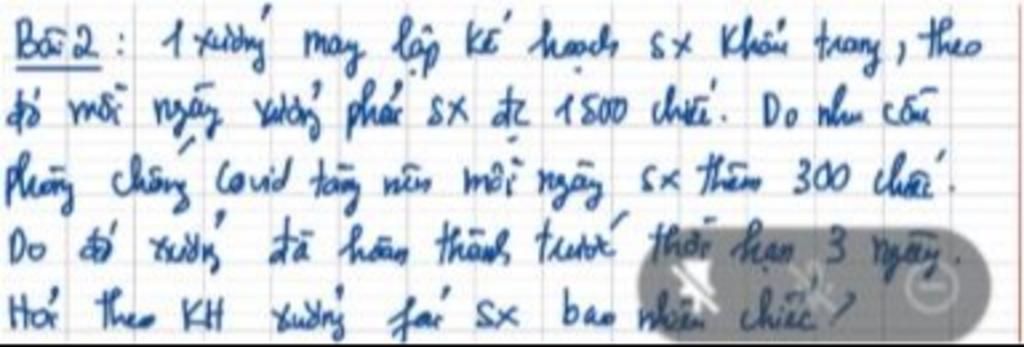 Bài 2 : 1 xưởng may lập kế hoạch sx khẩu trang, theo
đó mỗi ngày xưởng phải sx đc 1500 chiếc. Do nhu cầu
phòng chống Covid tăng nên mỗi ngày sx thêm 300 chiếc.
Do đó xưởng đã hoàn thành trước thời hạn 3 ngày.
Hỏi theo KH xưởng fải sx bao nhiêu chiếc?